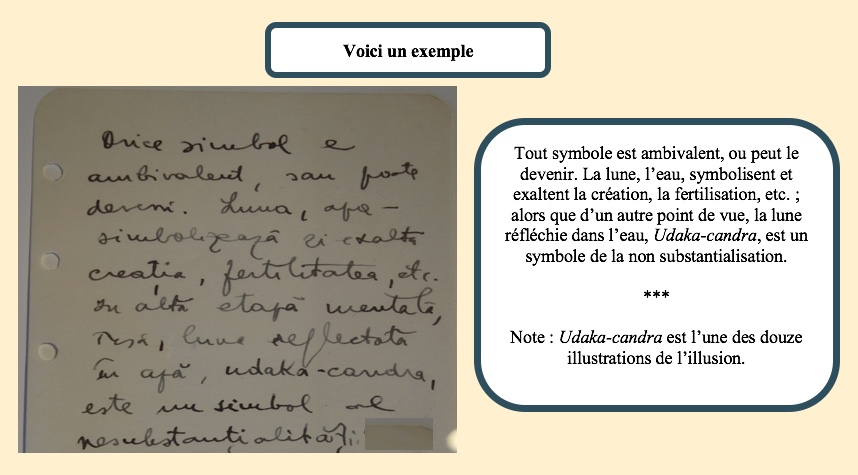 Voici un exemple
Orice simbol e
ambivalent, sau poate
deveni. Luna, apa –
simbolizează și exaltă
creația, fertilitatea, etc.
În altă etapă mentală,
însă, luna reflectată
în apă, udaka-candra,
este un simbol al
nesubstanțialității:
Tout symbole est ambivalent, ou peut le
devenir. La lune, l’eau, symbolisent et
exaltent la création, la fertilisation, etc. ;
alors que d’un autre point de vue, la lune
réfléchie dans l’eau, Udaka-candra, est un
symbole de la non substantialisation.
***
Note : Udaka-candra est l’une des douze
illustrations de l’illusion.